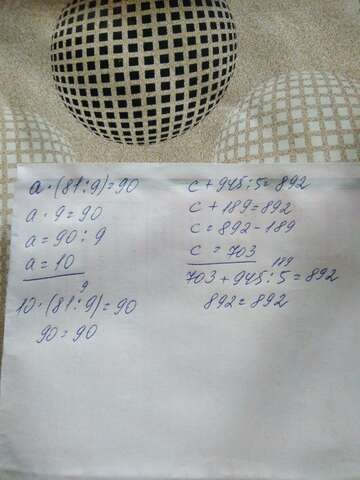 a · (81 : 9) = 90
a · 9 = 90
a = 90 : 9
a = 10
9
10 · (81 : 9) = 90
90 = 90
c + 945 : 5 = 892
c + 189 = 892
c = 892 - 189
c = 703
189
703 + 945 : 5 = 892
892 = 892